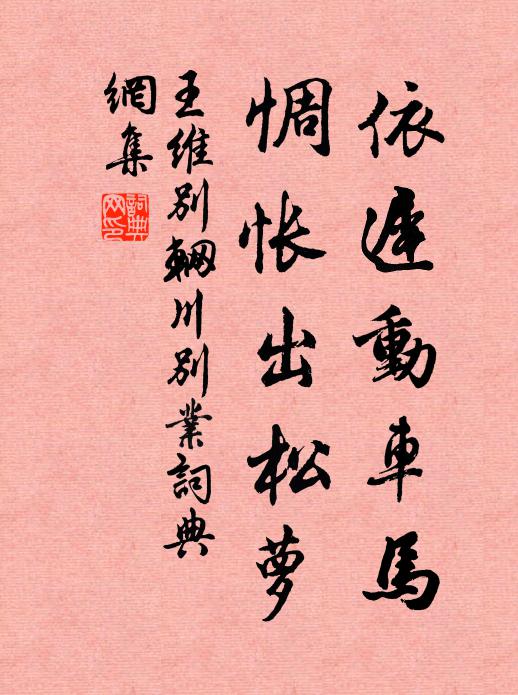 依遲動車馬
惆怅出松萝
王維别輞川别業詞典
網集
詞典
网印